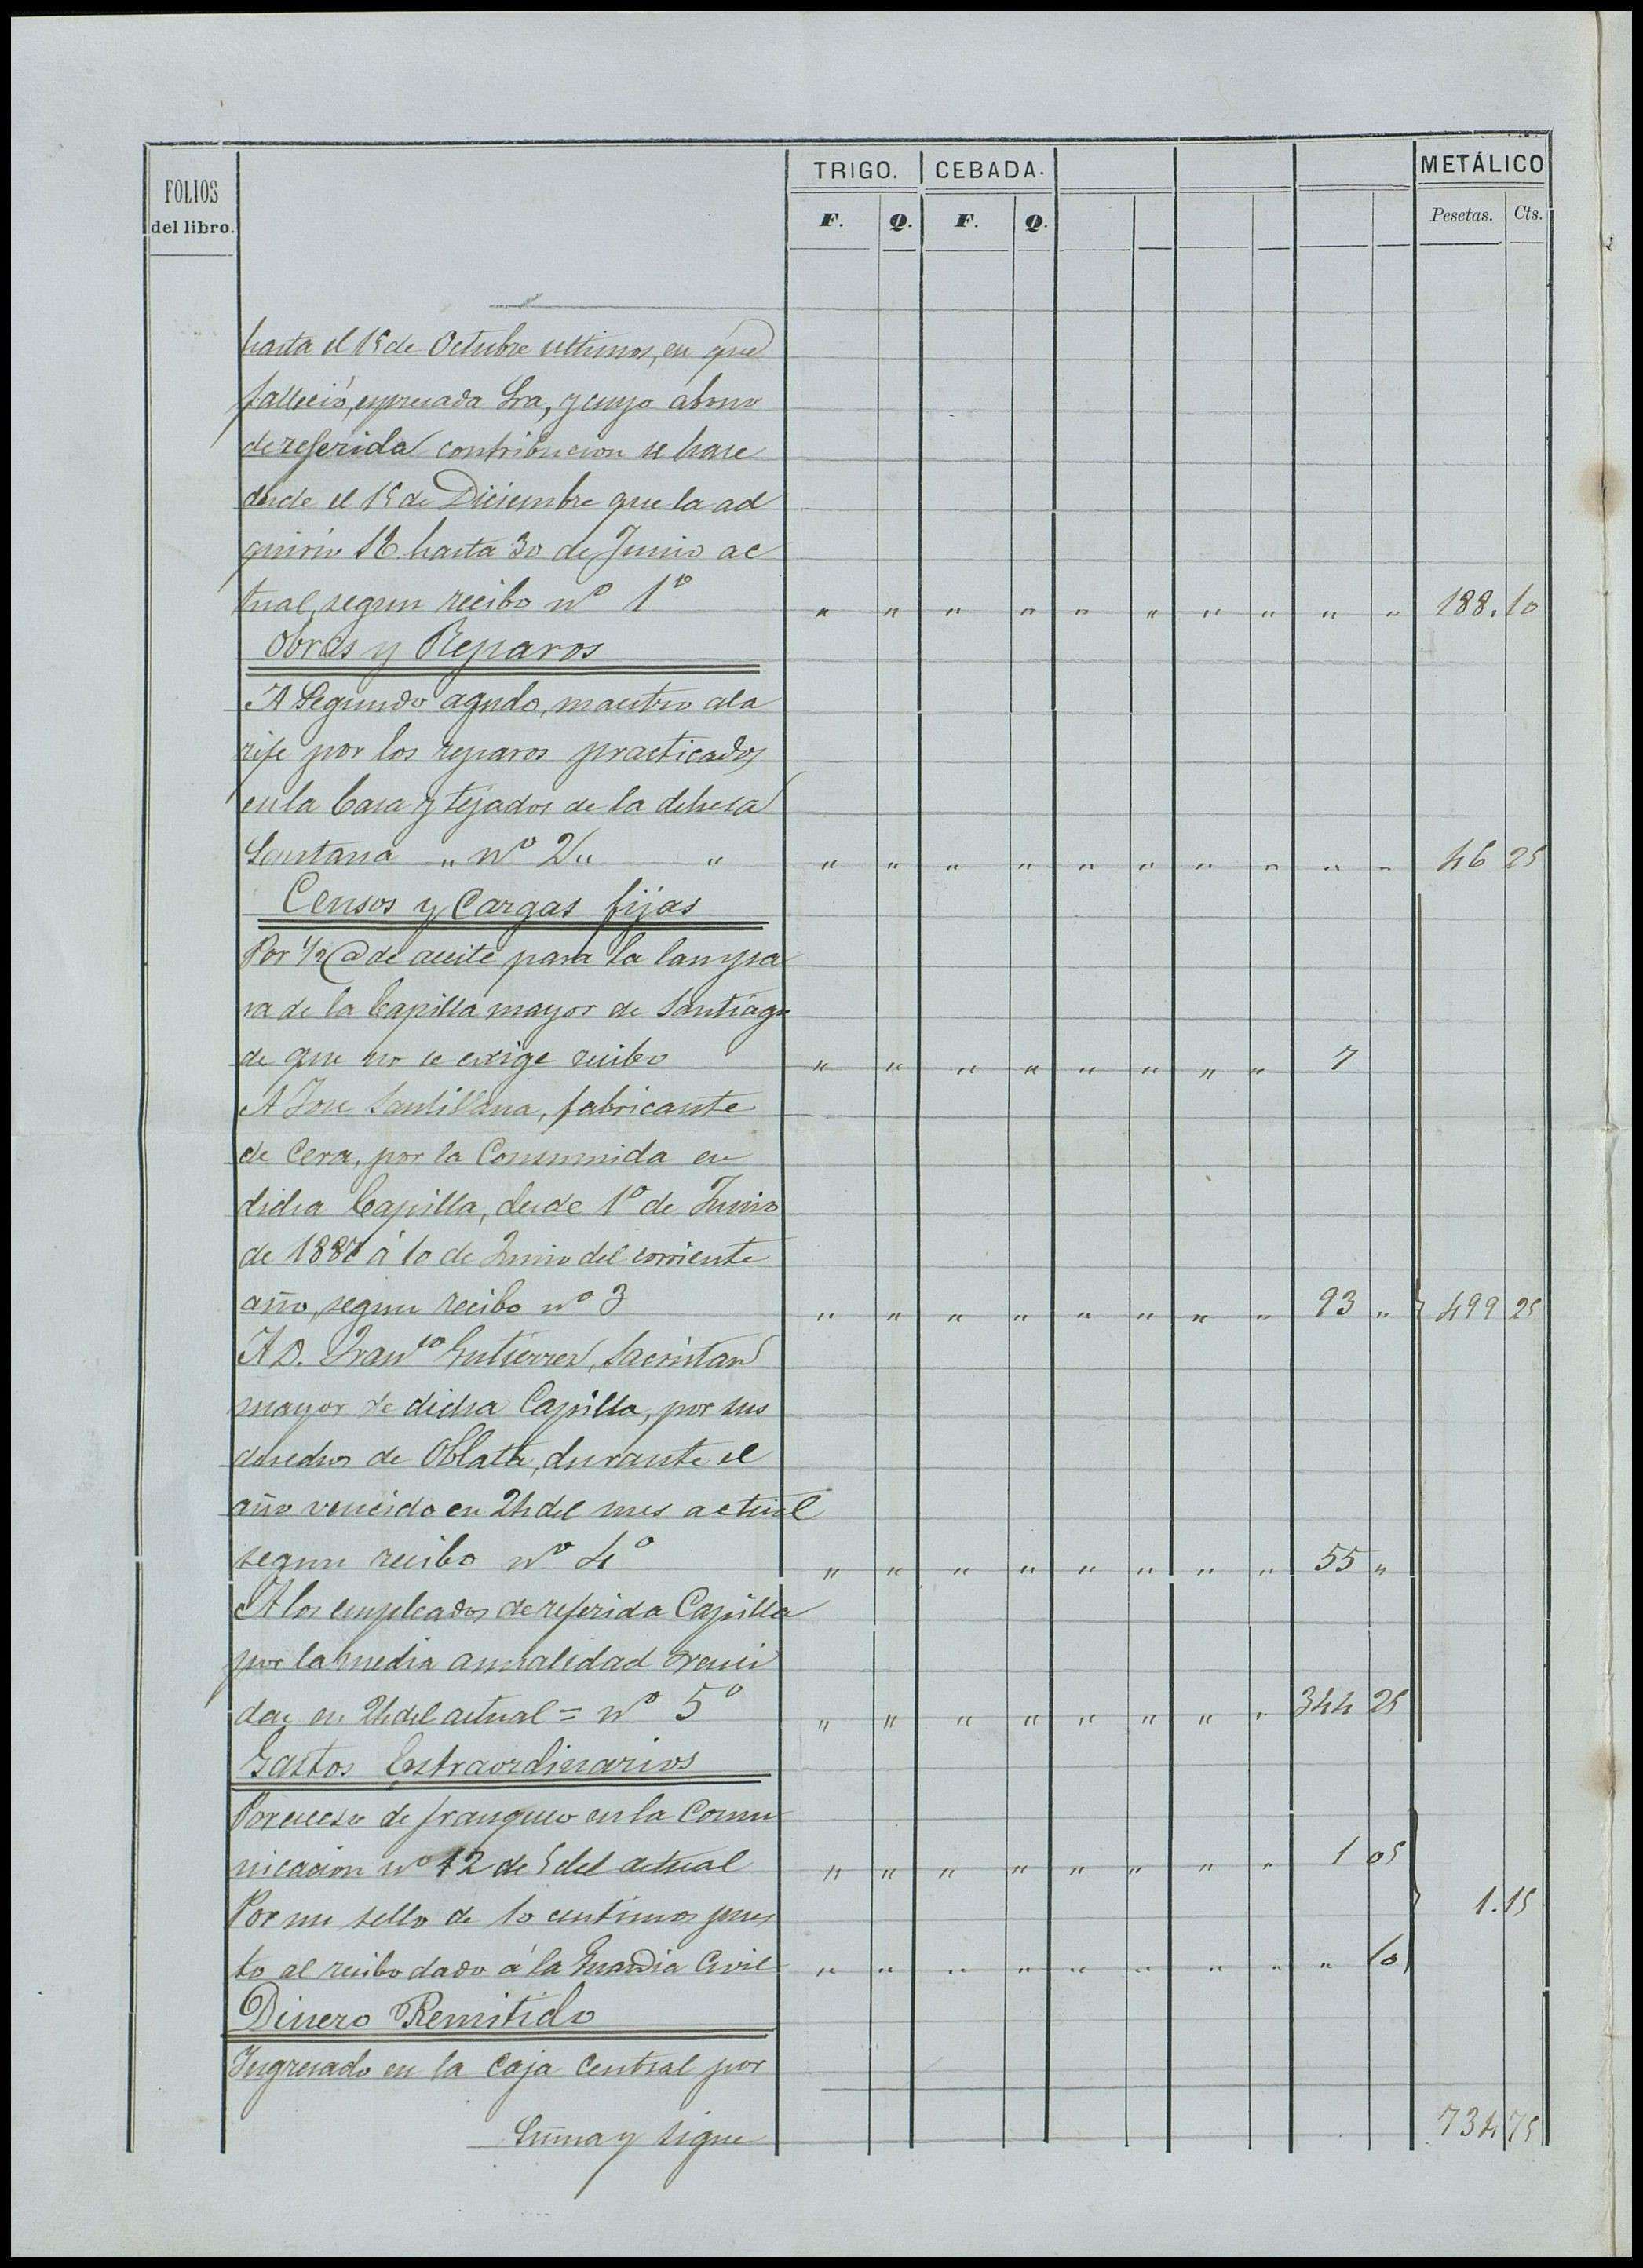 FOLIOS del libro. TRIGO. CEBADA. METÁLICO
F. Q. F. Q. Pesetas. Cts.
hasta el 15 de Octubre ultimos, en que
falleció, expresada Sra, y cuyo abono
de referida contribucion se hace
desde el 15 de Diciembre que la ad
quirió S.E. hasta 30 de Junio ac
tual, segun recibo nº 1º " " " " " " " " " " 188. 10
Obras y Reparos
A Segundo agudo, maestro ala
rife por los reparos practicados
en la Casa y tejados de la dehesa
Santana " nº 2 " " " " " " " " " " " " 46 25
Censos y Cargas fijas
Por 1/2 @ de aceite para la lampa
ra de la Capilla mayor de Santiago
de que no se exige recibo " " " " " " " " 7
A Jose Santillana, fabricante
de Cera, por la Consumida en
dicha Capilla, desde 1º de Junio
de 1887 á 10 de Junio del corriente
año, segun recibo nº 3 " " " " " " " " 93 " 499 25
A D. Franco Gutierrez, Sacristan
mayor de dicha Capilla, por sus
derechos de Oblata, durante el
año vencido en 24 del mes actual
segun recibo nº 4º " " " " " " " " 55 "
A los empleados de referida Capilla
por la media anualidad venci
da en 24 del actual = nº 5º " " " " " " " " 344 25
Gastos Extraordinarios
Por exceso de franqueo en la Comu
nicacion nº 12 de 5 del actual " " " " " " " " 1 05
1. 15
Por un sello de 10 centimos pues
to al recibo dado á la Guardia Civil " " " " " " " " " 10
Dinero Remitido
Ingresado en la Caja Central por
Suma y sigue 734 75